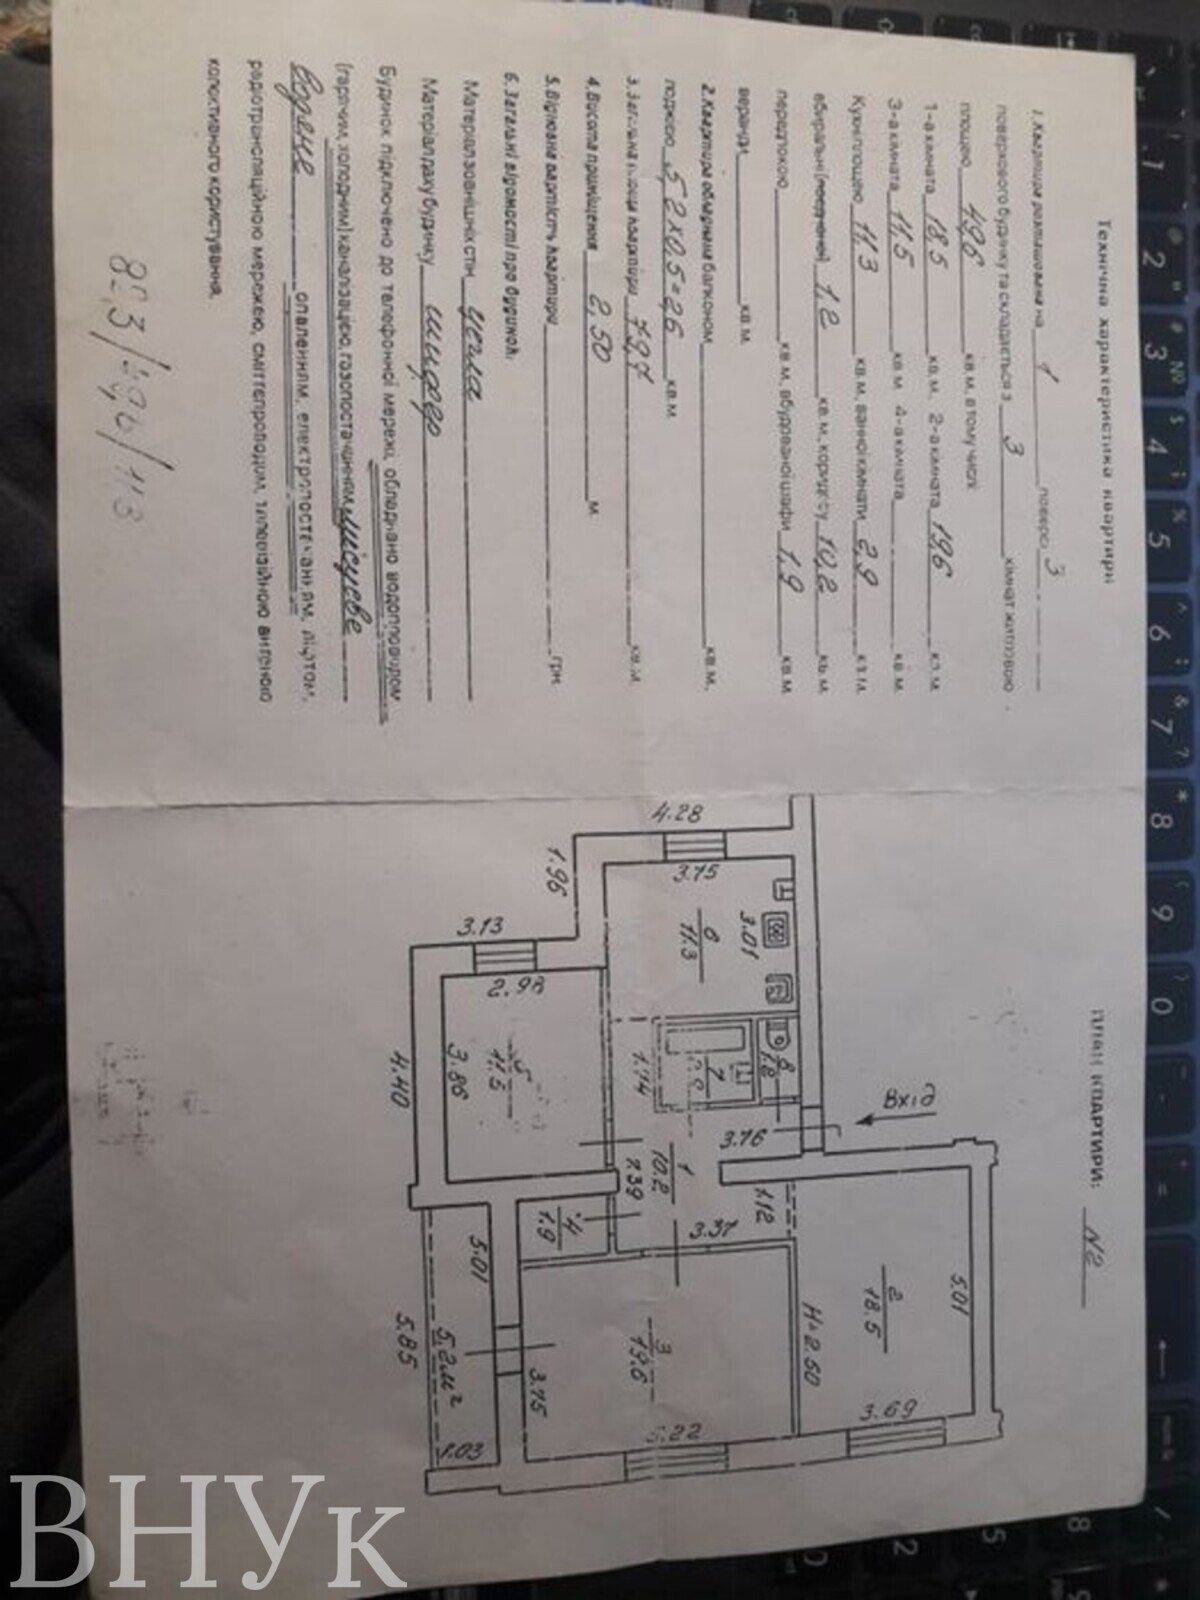 Технічна характеристика квартири
1. Квартира розташована на 1 поверсі 3
поверхового будинку та складається з 3 кімнат житловою
площею 49,6 кв.м, в тому числі:
1-а кімната 18,5 кв.м, 2-а кімната 19,6 кв.м
3-а кімната 11,5 кв.м, 4-а кімната кв.м
Кухні площею 11,3 кв.м, ванної кімнати 2,9 кв.м
вбиральні (поєднаної) 1,2 кв.м, коридору 10,2 кв.м
передпокою кв.м, вбудованої шафи 1,9 кв.м
веранди кв.м.
2. Квартира обладнана балконом кв.м,
лоджією 5,2х0,5=2,6 кв.м
3. Загальна площа квартири 79,7 кв.м.
4. Висота приміщення 2,50 м.
5. Відновна вартість квартири грн.
6. Загальні відомості про будинок.
Матеріал зовнішніх стін цегла
Матеріал даху будинку шифер
Будинок підключено до телефонної мережі, обладнано водопроводом
(гарячим, холодним) каналізацією, газопостачанням, місцеве
водяне опаленням, електропостачанням, ліфтом,
радіотрансляційною мережею, сміттєпроводом, телевізійною антеною
колективного користування.
82,3/49,6/11,3
ПЛАН КВАРТИРИ: N2
4.28
3.75
1.96
3.01
6
11.3
3.13
2.98
5
11.5
3.86
4.40
1.14
7
8
1.2
Вхід
3.76
1
10.2
7.39
1.12
3.37
4
1.9
2
18.5
5.01
H=2.50
3.69
3
19.6
3.75
5.22
5.01
5.2м²
5.85
1.03
ВНУк